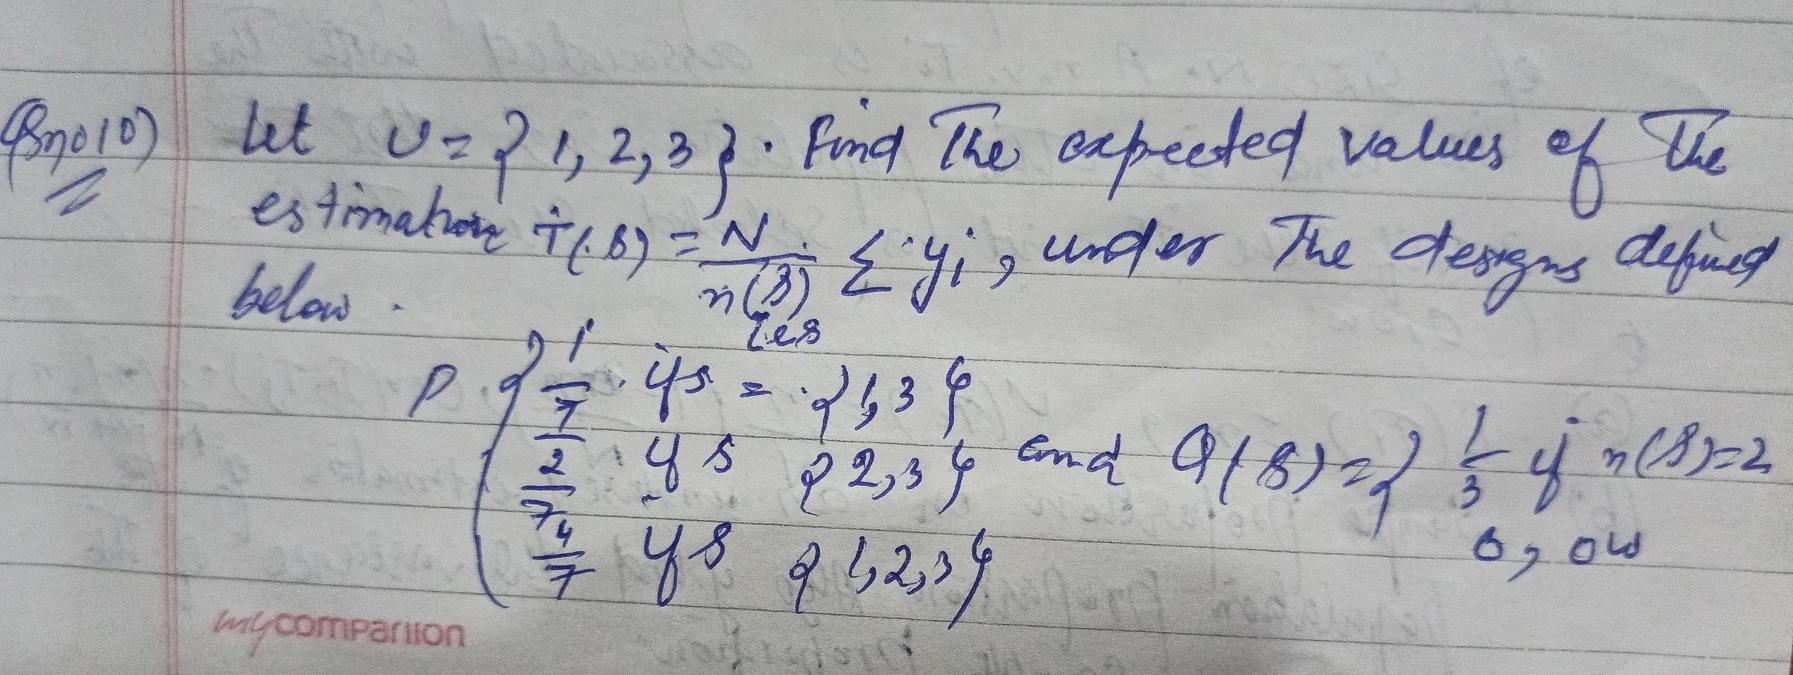 Qsno10) Let U = { 1, 2, 3 }. Find The expected values of The
estimators T(s) = N/n(s) Σ yi, under The designs defined
below. i∈s
P { 1/7 if s = {1,3}
2/7 if s {2,3} and Q(s) = { 1/3 if n(s)=2
4/7 if s {1,2,3} 0, ow
mycompanion